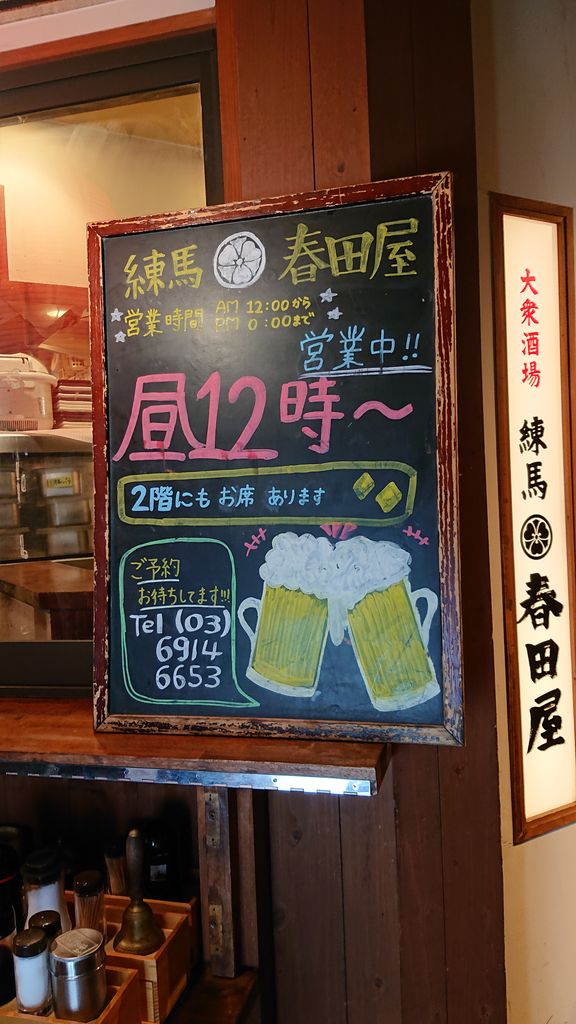 練馬 春田屋
営業時間 AM 12:00から
PM 0:00まで
営業中!!
昼12時〜
2階にも お席 あります
ご予約
お待ちしてます!!!
Tel (03)
6914
6653
大衆酒場 練馬 春田屋